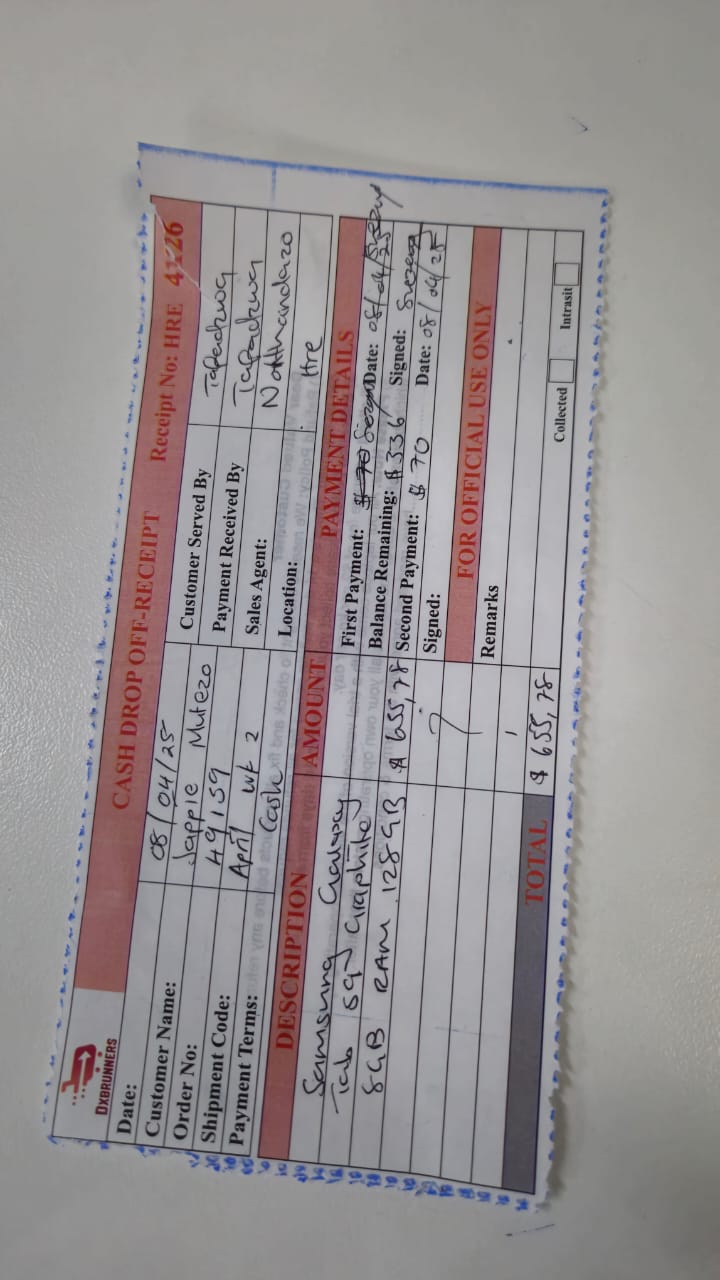 DXBRUNNERS
CASH DROP OFF-RECEIPT Receipt No: HRE 4126
Date: 08/04/25
Customer Name: Jappie Mutezo
Order No: 49159
Shipment Code: April Wk 2
Payment Terms: Cash
Customer Served By Tafadzwa
Payment Received By Tafadzwa
Sales Agent: Nothando
Location: Hre
DESCRIPTION AMOUNT
Samsung Galaxy
Tab S9 Graphite
8GB RAM 128GB $ 655,78
TOTAL $ 655,78
PAYMENT DETAILS
First Payment: $ 70 Date: 08/04/25
Balance Remaining: $ 336 Signed:
Second Payment: $ 70 Date: 08/04/25
Signed:
FOR OFFICIAL USE ONLY
Remarks
Collected Intrasit